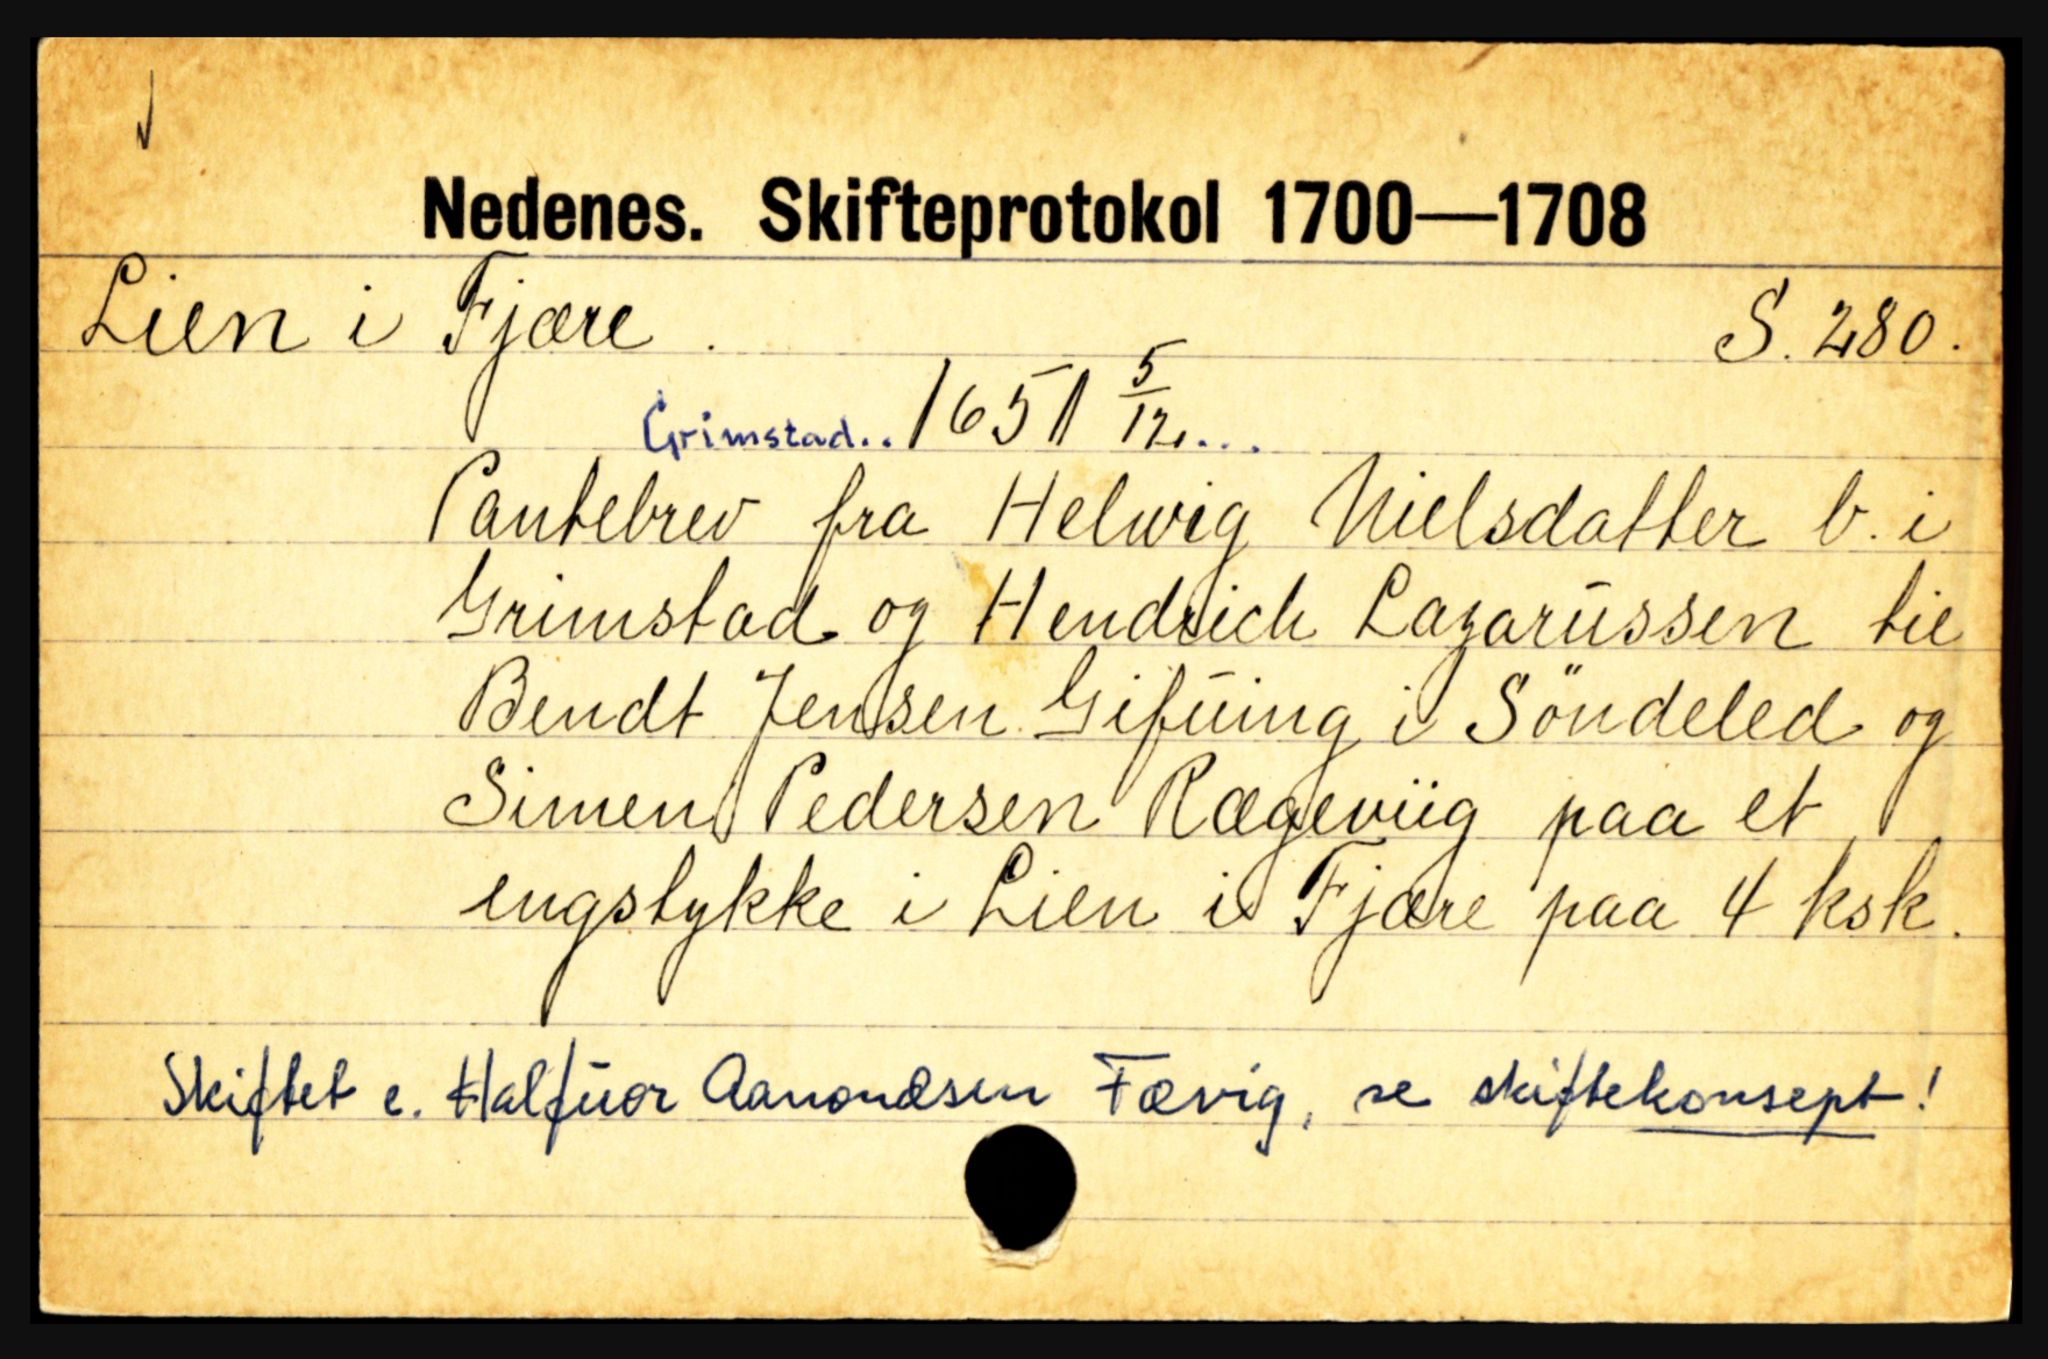 Nedenes. Skifteprotokol 1700—1708
Lien i Fjære. S. 280.
Grimstad.. 1651 5/12...
Pantebrev fra Helwig Nielsdatter b. i
Grimstad og Hendrich Lazarŭssen til
Bendt Jensen Gifŭing i Söndeled og
Simen Pedersen Rægeviig paa et
engstykke i Lien i Fjære paa 4 ksk.
Skiftet e. Halfŭor Aamondsen Fævig, se skiftekonsept!